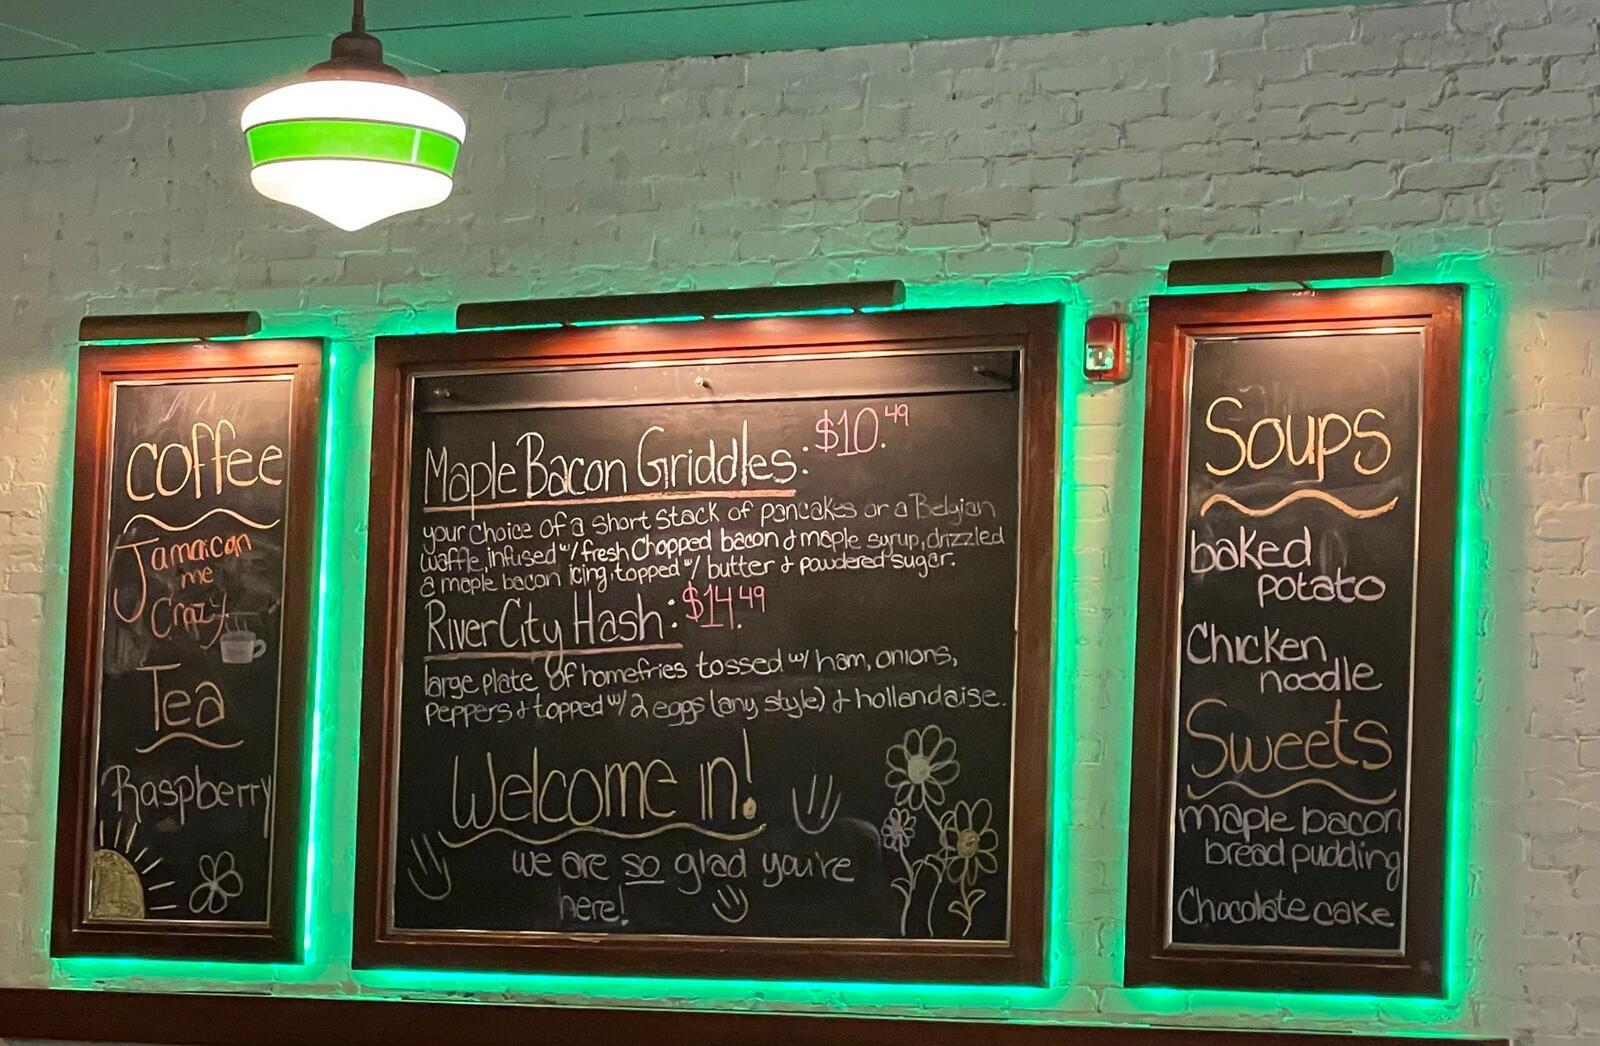 Coffee
Jamaican
me
Crazy
Tea
Raspberry
Maple Bacon Griddles: $10.49
your choice of a short stack of pancakes or a Belgian
waffle, infused w/ fresh chopped bacon & maple syrup, drizzled
a maple bacon icing, topped w/ butter & powdered sugar.
River City Hash: $14.49
large plate of homefries tossed w/ ham, onions,
peppers & topped w/ 2 eggs (any style) & hollandaise.
Welcome in!
we are so glad you're
here!
Soups
baked
potato
Chicken
noodle
Sweets
maple bacon
bread pudding
Chocolate cake